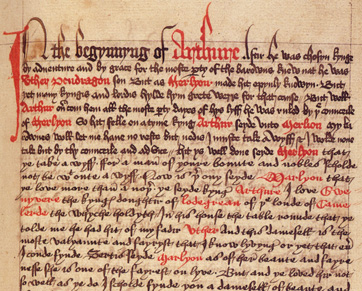 In the begynnyng of Arthure . Aftir he was chosyn kynge
by adventure and by grace for the moste party of the barowns knew nat he was
Uther Pendragon son But as Merlyon made hit opynly knowyn . But
yet many kyngis and lordis hylde hym grete werre for that cause . But well
Arthur ovircom hem all the moste party dayes of hys lyff he was ruled by the counceile
of Merlyon So hit felle on a tyme kyng Arthur seyde unto Merlion my ba
rownes woll let me have no reste but nedis I muste take a wyff . & I wolde none
take but by thy counceile and advice . Hit ys well done seyde Merlyon that
ye take a wyff . for a man of youre bounte and nobles scholde
not be w oute a wyff . Now is ther ony seyde Marlyon that
ye love more than a nother . ye seyde kyng Arthure I love Gwe
nyvere the kynges doughtir of lodegrean of the londe of Came
lerde the whyche holdyth in his house the table rounde that ye
tolde me he had hit of my fadir Uther and this damesell is the
moste valyaunte and fayryst that I know lyvyng or yet that ever
I coude fynde . Sertis seyde Marlyon as of her beaute and fayre
nesse she is one of the fayrest on lyve . But and ye loved hir not
so well as ye do I scholde fynde you a damesell of beaute and